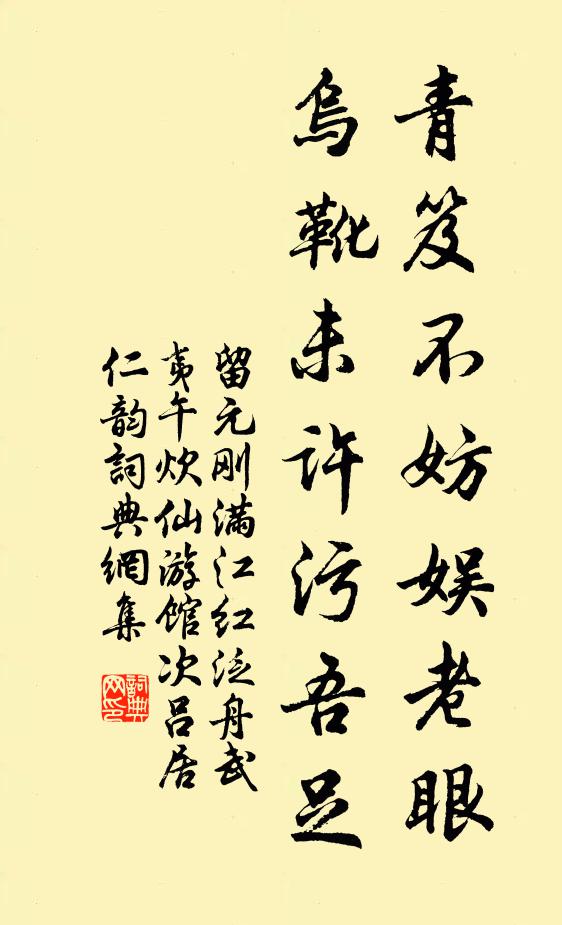 青笈不妨娱老眼
乌靴未许污吾足
留元刚满江红泛舟武
夷午炊仙游馆次吕居
仁韵詞典網集
詞典网印